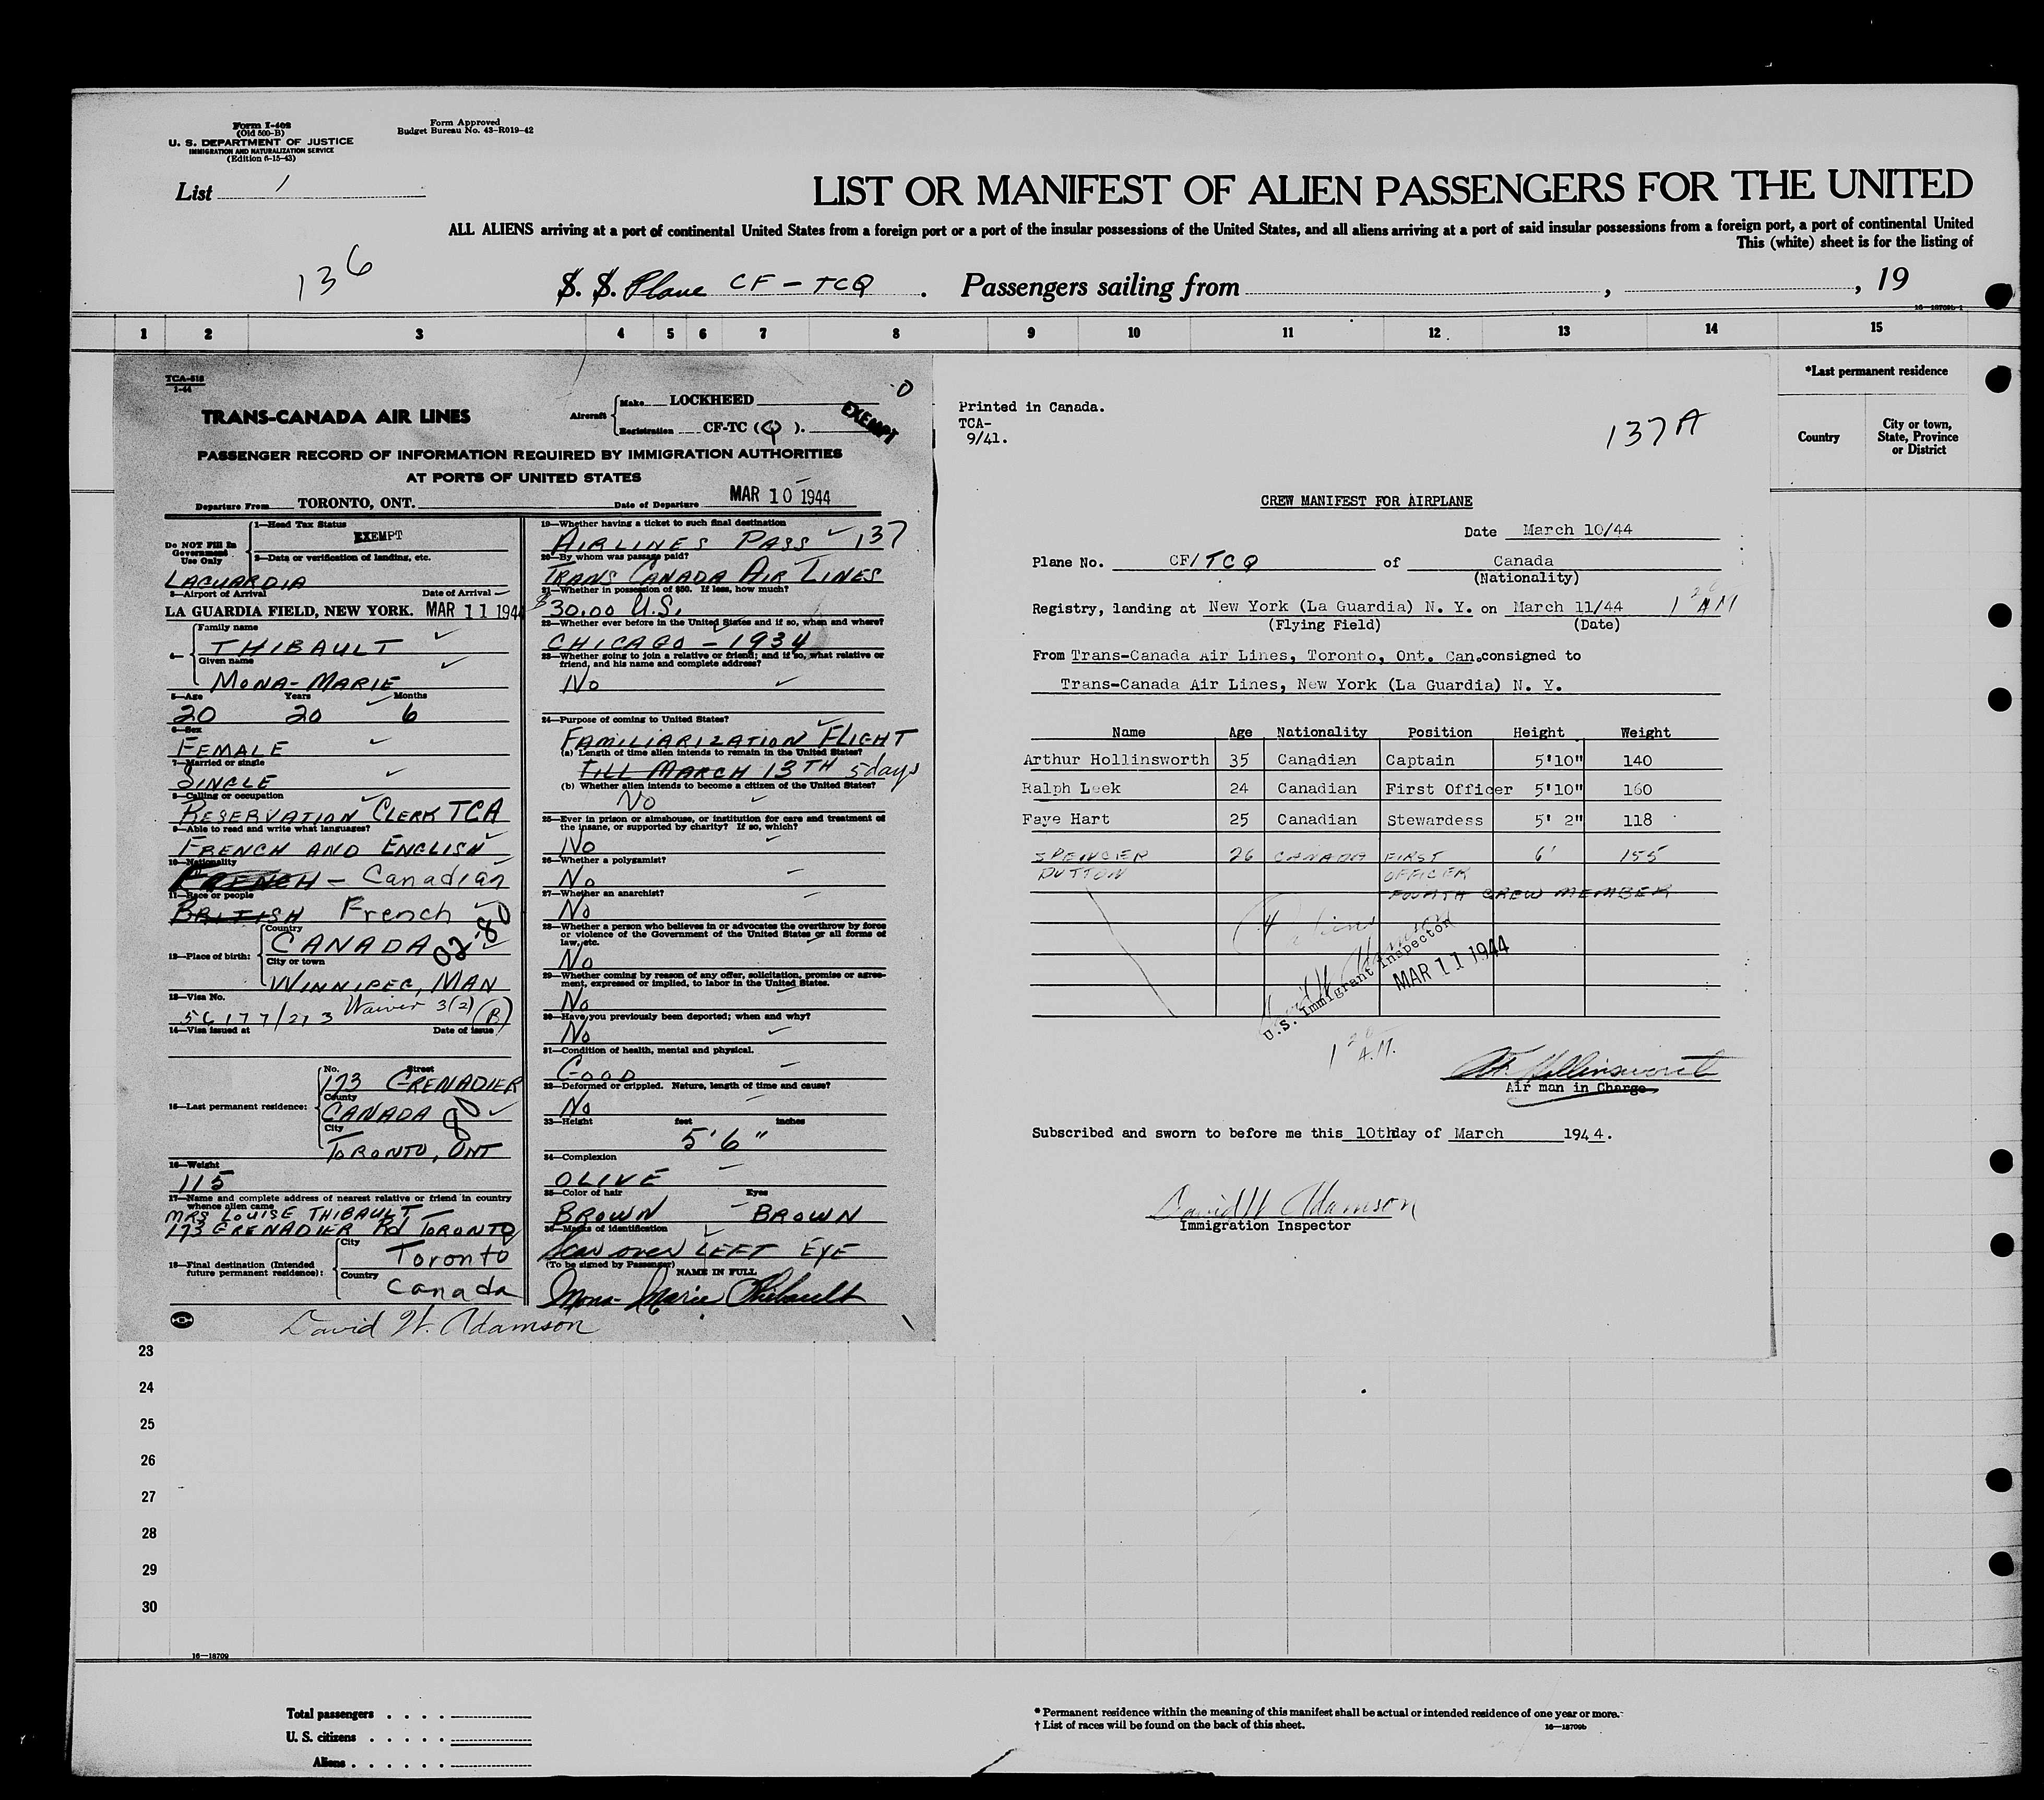 Form I-402
(Old 500-B)
U. S. DEPARTMENT OF JUSTICE
IMMIGRATION AND NATURALIZATION SERVICE
(Edition 6-15-43)
Form Approved
Budget Bureau No. 43-R019-42
List 1
LIST OR MANIFEST OF ALIEN PASSENGERS FOR THE UNITED
ALL ALIENS arriving at a port of continental United States from a foreign port or a port of the insular possessions of the United States, and all aliens arriving at a port of said insular possessions from a foreign port, a port of continental United
This (white) sheet is for the listing of
136
S. S. Plane CF - TCQ . Passengers sailing from , , 19
1 2 3 4 5 6 7 8 9 10 11 12 13 14 15
*Last permanent residence
Country
City or town,
State, Province
or District
TCA-518
1-44
TRANS-CANADA AIR LINES
Aircraft
Make LOCKHEED
Registration CF-TC (Q).
EXEMPT
0
PASSENGER RECORD OF INFORMATION REQUIRED BY IMMIGRATION AUTHORITIES
AT PORTS OF UNITED STATES
Departure From TORONTO, ONT. Date of Departure MAR 10 1944
Do NOT Fill In
Government
Use Only
1—Head Tax Status
EXEMPT
2—Data or verification of landing, etc.
LAGUARDIA
3—Airport of Arrival Date of Arrival
LA GUARDIA FIELD, NEW YORK. MAR 11 1944
4—
Family name
THIBAULT
Given name
MONA-MARIE
5—Age Years Months
20 20 6
6—Sex
FEMALE
7—Married or single
SINGLE
8—Calling or occupation
RESERVATION CLERK TCA
9—Able to read and write what languages?
FRENCH AND ENGLISH
10—Nationality
FRENCH - Canadian
11—Race or people
BRITISH French
12—Place of birth:
Country
CANADA
02-80
City or town
WINNIPEG, MAN
13—Visa No.
56177/273 Waiver 3(2) (B)
14—Visa issued at Date of issue
15—Last permanent residence:
No. Street
173 GRENADIER
County
CANADA 80
City
TORONTO, ONT
16—Weight
115
17—Name and complete address of nearest relative or friend in country
whence alien came
MRS LOUISE THIBAULT
173 GRENADIER Rd TORONTO
18—Final destination (Intended
future permanent residence):
City
Toronto
Country
Canada
David W. Adamson
19—Whether having a ticket to such final destination
AIRLINES PASS 137
20—By whom was passage paid?
TRANS CANADA AIR LINES
21—Whether in possession of $50. If less, how much?
$30.00 U.S.
22—Whether ever before in the United States and if so, when and where?
CHICAGO - 1934
23—Whether going to join a relative or friend; and if so, what relative or
friend, and his name and complete address?
No
24—Purpose of coming to United States?
FAMILIARIZATION FLIGHT
(a) Length of time alien intends to remain in the United States?
TILL MARCH 13TH 5 days
(b) Whether alien intends to become a citizen of the United States?
No
25—Ever in prison or almshouse, or institution for care and treatment of
the insane, or supported by charity? If so, which?
No
26—Whether a polygamist?
No
27—Whether an anarchist?
No
28—Whether a person who believes in or advocates the overthrow by force
or violence of the Government of the United States or all forms of
law, etc.
No
29—Whether coming by reason of any offer, solicitation, promise or agree-
ment, expressed or implied, to labor in the United States.
No
30—Have you previously been deported; when and why?
No
31—Condition of health, mental and physical.
GOOD
32—Deformed or crippled. Nature, length of time and cause?
No
33—Height feet inches
5'6"
34—Complexion
OLIVE
35—Color of hair Eyes
BROWN BROWN
36—Marks of identification
Scar over LEFT EYE
(To be signed by Passenger)
NAME IN FULL
Mona-Marie Thibault
Printed in Canada.
TCA-
9/41.
137A
CREW MANIFEST FOR AIRPLANE
Date March 10/44
Plane No. CF/TCQ of Canada
(Nationality)
Registry, landing at New York (La Guardia) N. Y. on March 11/44 1 20 AM
(Flying Field) (Date)
From Trans-Canada Air Lines, Toronto, Ont. Can. consigned to
Trans-Canada Air Lines, New York (La Guardia) N. Y.
Name Age Nationality Position Height Weight
Arthur Hollinsworth 35 Canadian Captain 5'10" 140
Ralph Leek 24 Canadian First Officer 5'10" 160
Faye Hart 25 Canadian Stewardess 5' 2" 118
SPENCER 26 CANADA FIRST 6' 155
DUTTON OFFICER
FOURTH CREW MEMBER
David W. Adamson
U.S. Immigrant Inspector
MAR 11 1944
1 20 A.M.
A. Hollinsworth
Air man in Charge
Subscribed and sworn to before me this 10th day of March 1944.
David W Adamson
Immigration Inspector
23
24
25
26
27
28
29
30
16—18709
Total passengers . . . .
U. S. citizens . . . . .
Aliens . . . . . .
* Permanent residence within the meaning of this manifest shall be actual or intended residence of one year or more.
† List of races will be found on the back of this sheet.
16—18709b